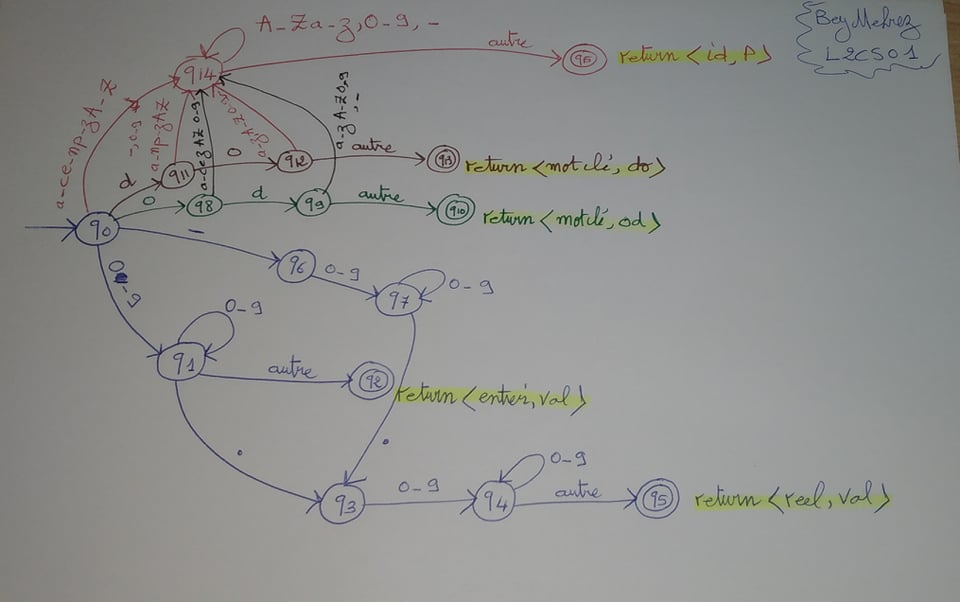 Bey Mehrez
L2CS01
A-Za-z,0-9,-
autre
q14
q15
return <id, P>
a-ce-np-zA-Z
-,0-9
a-np-zAZ
a-z A-Z 0-9
,-
d
q11
o
q12
autre
q13
return <motclé, do>
o
q8
d
q9
autre
q10
return <motclé, od>
q0
-
q6
0-9
q7
0-9
0-9
q1
0-9
autre
q2
return <entier, val>
.
.
q3
0-9
q4
0-9
autre
q5
return <reel, val>